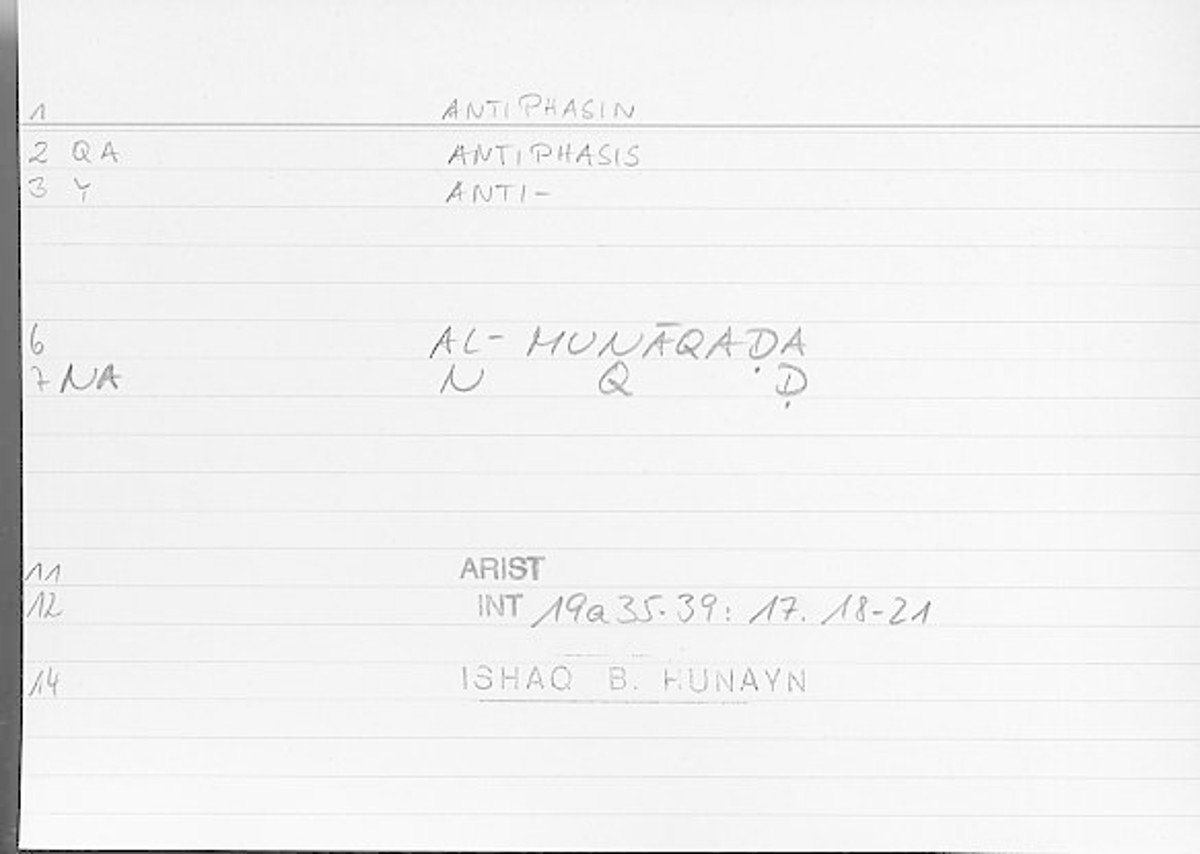 1 ANTIPHASIN
2 QA ANTIPHASIS
3 Y ANTI-
6 AL- MUNĀQAḌA
7 NA N Q Ḍ
11 ARIST
12 INT 19a35-39: 17. 18-21
14 ISHAQ B. HUNAYN